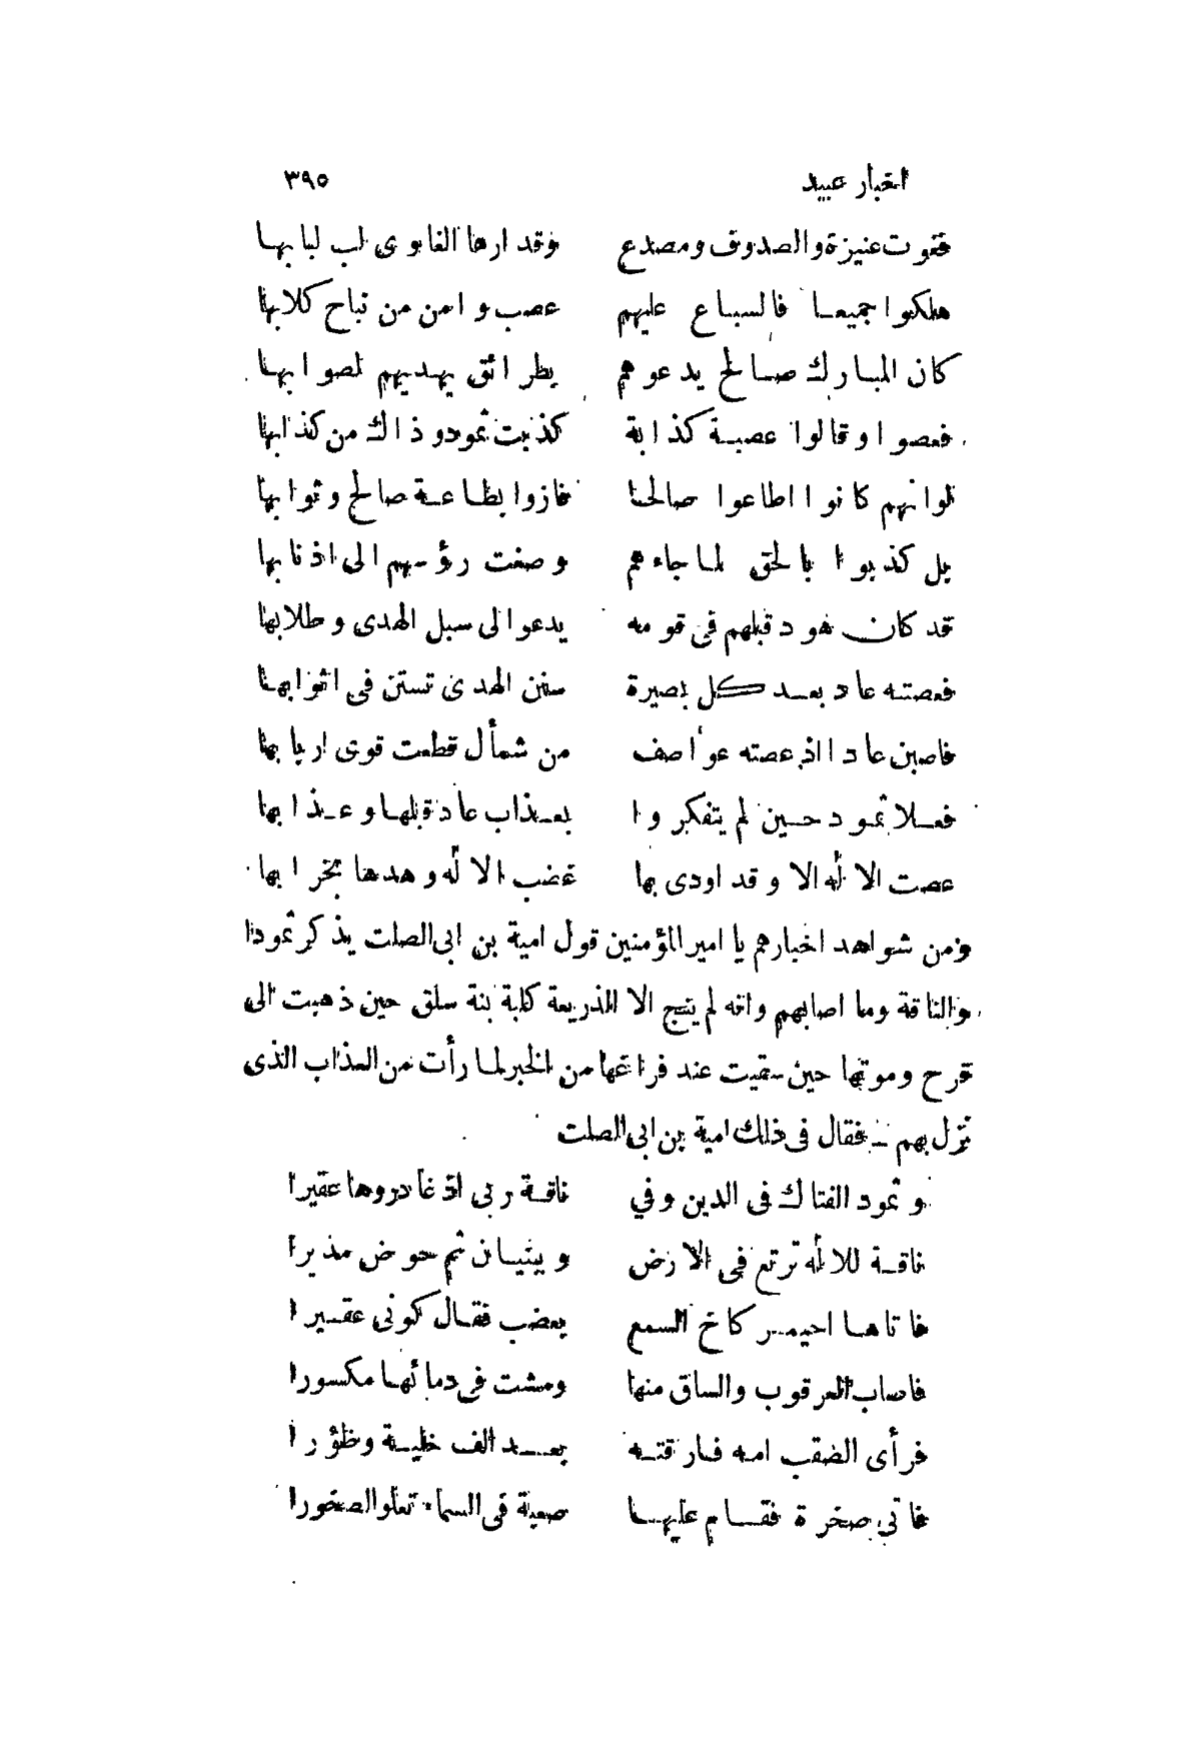 اخبار عبيد ٣٩٥
فغوت عنيزة والصدوف ومصدع وقدارها الغاوى لب لبابها
هلكوا جميعا فالسباع عليهم عصب وامن من نباح كلابها
كان المبارك صالح يدعوهم بطرائق يهديهم لصوابها
فعصوا وقالوا عصبة كذابة كذبت ثمود وذاك من كذابها
لوانهم كانوا اطاعوا صالحا فازوا بطاعة صالح وثوابها
بل كذبوا بالحق لما جاءهم وصغت رؤسهم الى اذنابها
قد كان هود قبلهم فى قومه يدعو الى سبل الهدى وطلابها
فعصته عاد بعد كل بصيرة سنن الهدى تستن فى اثوابها
فاصبن عادا اذ عصته عواصف من شمأل قطعت قوى اربابها
فعلا ثمود حين لم يتفكروا بعذاب عاد قبلها وعذابها
عصت الاله الا وقد اودى بها غضب الاله وهدها بخرابها
ومن شواهد اخبارهم يا امير المؤمنين قول امية بن ابى الصلت يذكر ثمودا
والناقة وما اصابهم وانه لم ينج الا الذريعة كلبة بنة سلق حين ذهبت الى
قرح وموتها حين سقيت عند فراغها من الخبر لما رأت من العذاب الذى
نزل بهم – فقال فى ذلك امية بن ابى الصلت
وثمود الفتاك فى الدين وفي ناقة ربى اذ غادروها عقيرا
ناقة للاله ترتع فى الارض وبنيان ثم حوض مديرا
فاتاها احيمر كاخ السمع بعضب فقال كونى عقيرا
فاصاب العرقوب والساق منها ومشت فى دمائها مكسورا
فرأى الضقب امه فارقته بعد الف خلية وظؤرا
فاتى صخرة فقام عليها صعبة فى السماء تعلو الصخورا